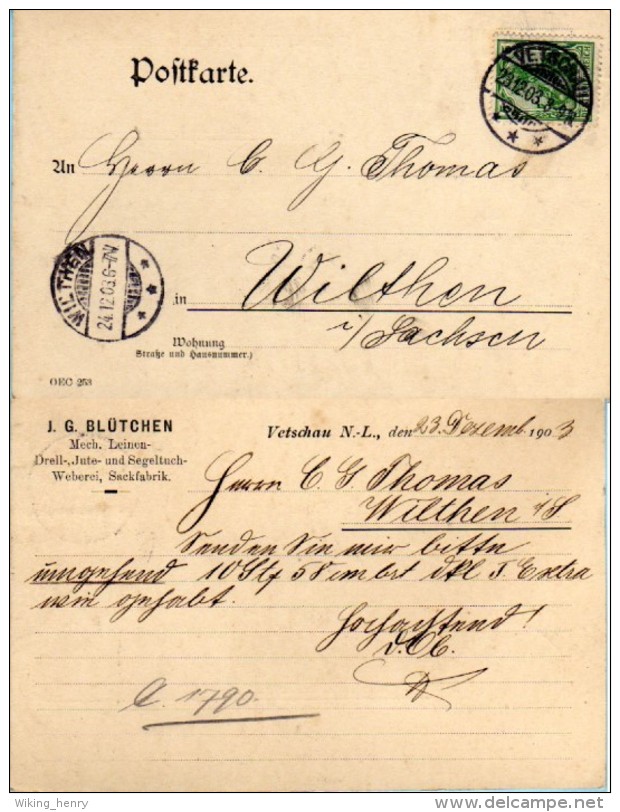 Postkarte.
VETSCHAU
23.12.03.8-9N.
An Herrn C. G. Thomas
WILTHEN
24.12.03.6-7V.
in Wilthen
i/Sachsen
Wohnung
(Straße und Hausnummer.)
OEC 253
J. G. BLÜTCHEN
Mech. Leinen-
Drell-, Jute- und Segeltuch-
Weberei, Sackfabrik.
Vetschau N.-L., den 23. Dezemb 1903
Herrn C. G. Thomas
Wilthen i/S
Senden Sie mir bitte
umgehend 10 Stck 58 embrt dkl J. Extra
wie gehabt.
Hochachtend!
d. O.
C. 1790.
Wiking_henry
delcampe.net